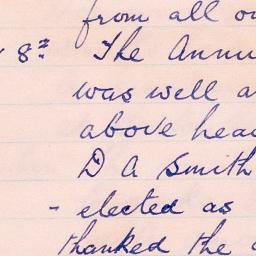 from all o
8th The Annu
was well a
above hea
D A Smith
- elected as
thanked the